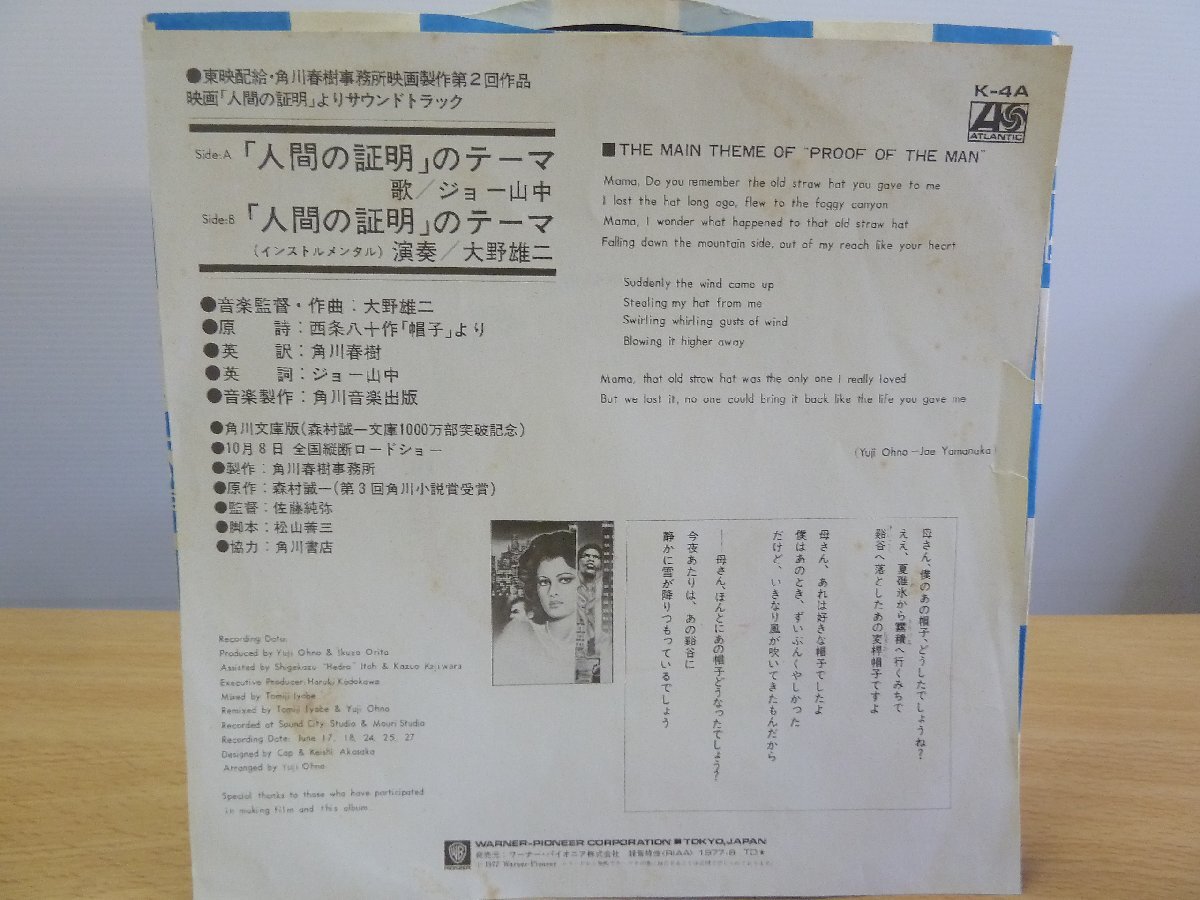 ●東映配給・角川春樹事務所映画製作第2回作品
映画「人間の証明」よりサウンドトラック
Side:A 「人間の証明」のテーマ
歌／ジョー山中
Side:B 「人間の証明」のテーマ
(インストルメンタル) 演奏／大野雄二
●音楽監督・作曲：大野雄二
●原　詩：西条八十作「帽子」より
●英　訳：角川春樹
●英　詞：ジョー山中
●音楽製作：角川音楽出版
●角川文庫版(森村誠一文庫1000万部突破記念)
●10月8日 全国縦断ロードショー
●製作：角川春樹事務所
●原作：森村誠一(第3回角川小説賞受賞)
●監督：佐藤純弥
●脚本：松山善三
●協力：角川書店
Recording Data:
Produced by Yuji Ohno & Ikuzo Orita
Assisted by Shigekazu "Hedro" Itoh & Kazuo Kajiwara
Executive Producer: Haruki Kadokawa
Mixed by Tomiji Iyobe
Remixed by Tomiji Iyobe & Yuji Ohno
Recorded at Sound City Studio & Mouri Studio
Recording Date: June 17, 18, 24, 25, 27
Designed by Cap & Keishi Akasaka
Arranged by Yuji Ohno
Special thanks to those who have participated
in making film and this album.
K-4A
ATLANTIC
■THE MAIN THEME OF "PROOF OF THE MAN"
Mama, Do you remember the old straw hat you gave to me
I lost the hat long ago, flew to the foggy canyon
Mama, I wonder what happened to that old straw hat
Falling down the mountain side, out of my reach like your heart
Suddenly the wind came up
Stealing my hat from me
Swirling whirling gusts of wind
Blowing it higher away
Mama, that old straw hat was the only one I really loved
But we lost it, no one could bring it back like the life you gave me
(Yuji Ohno—Joe Yamanaka)
母さん、僕のあの帽子、どうしたでしょうね？
ええ、夏碓氷から霧積へ行くみちで
谿谷へ落としたあの麦稈帽子ですよ
母さん、あれは好きな帽子でしたよ
僕はあのとき、ずいぶんくやしかった
だけど、いきなり風が吹いてきたもんだから
——母さん、ほんとにあの帽子どうなったでしょう？
今夜あたりは、あの谿谷に
静かに雪が降りつもっているでしょう
WARNER-PIONEER CORPORATION ■ TOKYO, JAPAN
発売元：ワーナー・パイオニア株式会社 録音特性(RIAA) 1977・8 TD★
1977 Warner-Pioneer